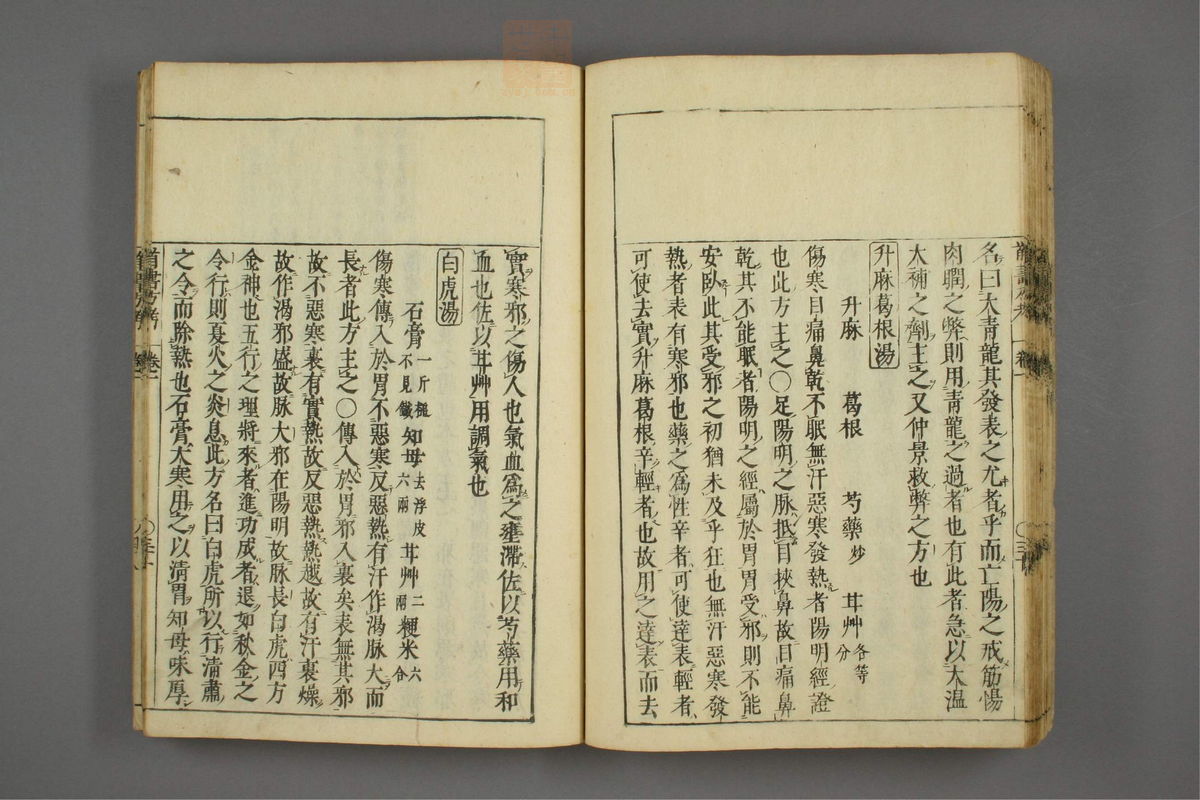 名曰大青龍其發表之尤者乎而亡陽之戒筋惕
肉瞤之弊則用青龍之過者也有此者急以大温
大補之劑主之又仲景救弊之方也
升麻葛根湯
升麻 葛根 芍藥炒 甘艸各等分
傷寒目痛鼻乾不眠無汗惡寒發熱者陽明經證
也此方主之〇足陽明之脉抵目挾鼻故目痛鼻
乾其不能眠者陽明之經屬於胃胃受邪則不能
安臥此其受邪之初猶未及乎狂也無汗惡寒發
熱者表有寒邪也藥之爲性辛者可使達表輕者
可使去實升麻葛根辛輕者也故用之達表而去
實寒邪之傷人也氣血爲之壅滯佐以芍藥用和
血也佐以甘艸用調氣也
白虎湯
石膏一斤槌不見鐵 知母去浮皮六兩 甘艸二兩 粳米六合
傷寒傳入於胃不惡寒反惡熱有汗作渴脉大而
長者此方主之〇傳入於胃邪入裏矣表無其邪
故不惡寒裏有實熱故反惡熱熱越故有汗裏燥
故作渴邪盛故脉大邪在陽明故脉長白虎西方
金神也五行之理將來者進功成者退如秋金之
令行則夏火之炎息此方名曰白虎所以行清肅
之令而除熱也石膏大寒用之以清胃知母味厚
卷一